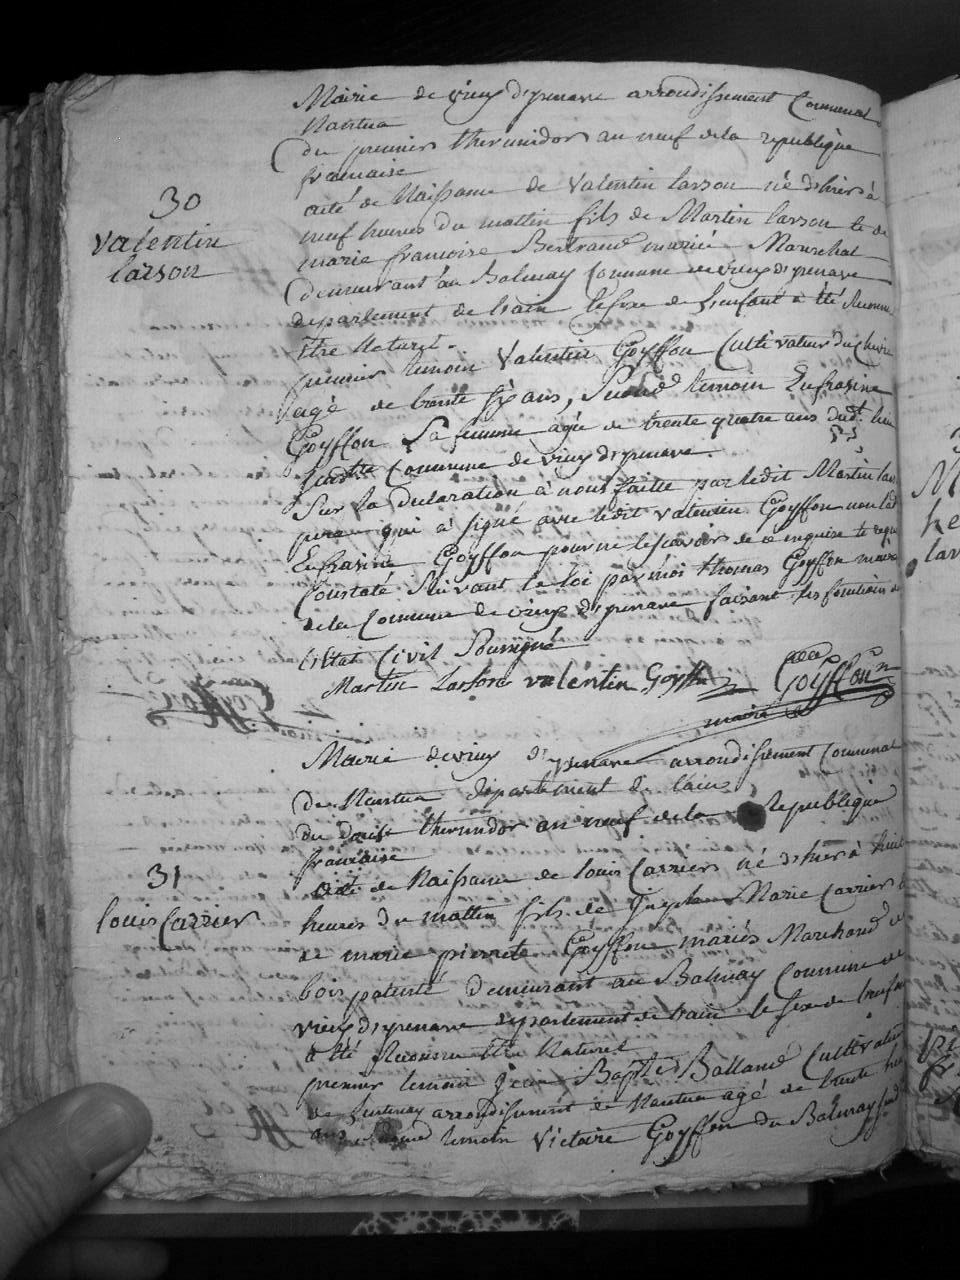 Mairie de vieux d'yzenave arrondissement Communal
Nantua
Du premier thermidor an neuf de la republique
francaise
acte de Naissance de Valentin Larson né d'hier à
30
neuf heures du mattin fils de Martin Larson et de
Valentin
Larson
marie francoise Bertrand mariés Marechal
demeurant au Balmay Commune de vieux d'yzenave
departement de L'ain le sexe de L'enfant a été Reconnu
être
premier temoin Valentin Goyffon Cultivateur du
agé de trente six ans, Second temoin Eufrasine
Goyffon Sa femme agée de trente quatre ans dudt. lieu
Susditte Commune de vieux d'yzenave.
Sur la declaration à nous faitte par ledit Martin
pere qui à signé avec ledit Valentin Goyffon non lad
Eufrasine Goyffon pour ne le scavoir de ce enquise et requise
Constaté Suivant la loi par moi thomas Goyffon maire
de la Commune de vieux d'yzenave faisant les fonctions
L'état Civil Soussigné
Martin Larson valentin Goyffon Goyffon
maire
Mairie de vieux d'yzenave arrondissement Communal
de Nantua département de L'ain
Du douse thermidor an neuf de la Republique
francaise
31
acte de Naissance de Louis Carrier né d'hier à huit
Louis Carrier
heures du mattin fils de Joseph Marie Carrier
de marie pierrette Goyffon mariés Marchand de
bois patenté demeurant au Balmay Commune de
vieux d'yzenave departement de L'ain le sexe de L'enfant
a été Reconnu
premier temoin Jean Bapte Balland Cultivateur
de arrondissement de Nantua agé de trente
ans Second temoin Victoire Goyffon du Balmay